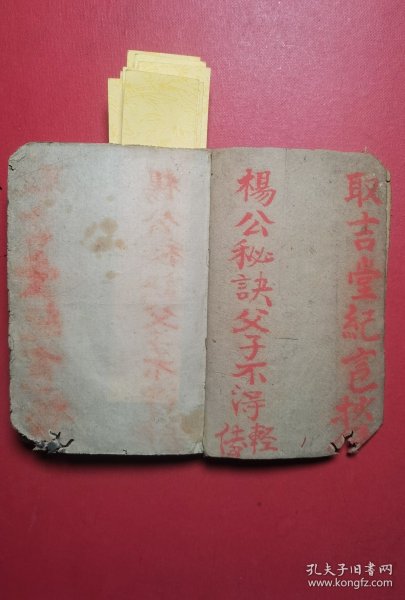 取吉堂紀
楊公秘訣父子不淂輕
孔夫子旧书网
www.kongfz.com